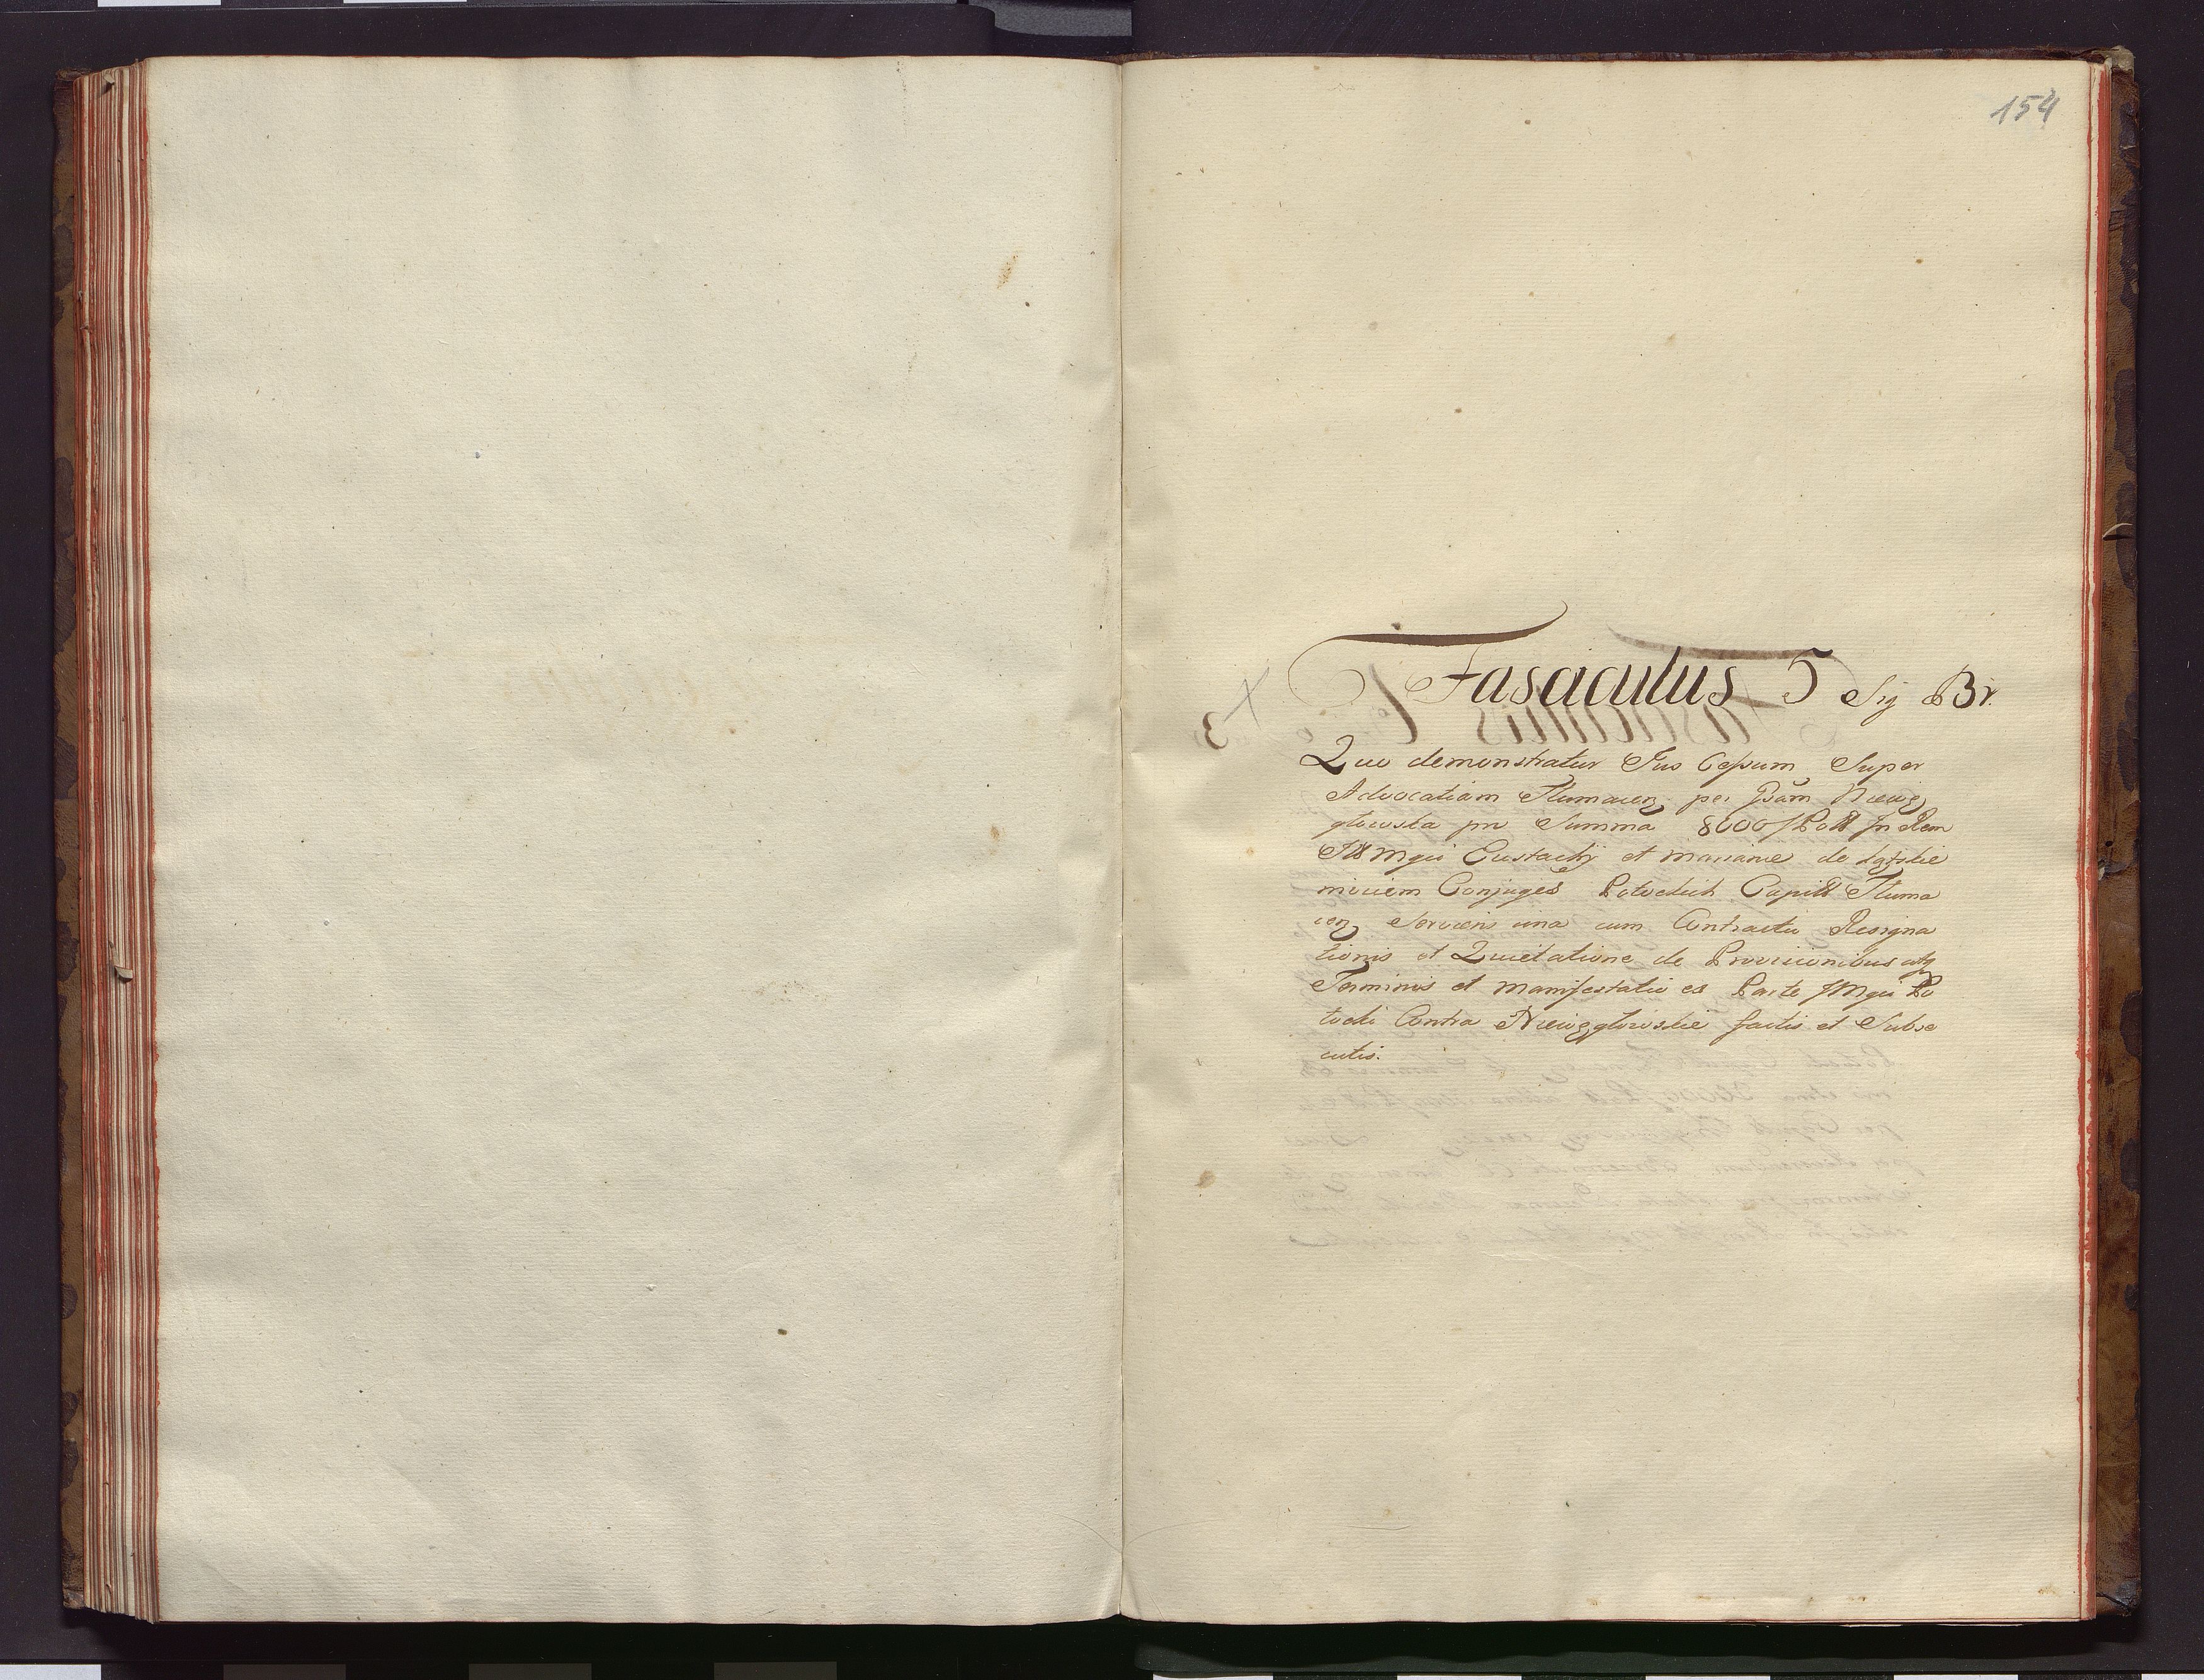 154
Fasciculus 5 Sig Br.
Quo demonstratur Jus Cessum Super
Advocatiam Tlumacen per Niewę
głowska pro Summa 8000 f Poll In Rem
Ill Mgci Eustachij et Marianne de Kątskie
Conjuges Potockich Capitt Tluma
cen Serviens una cum Contractu Resigna
tionis et Quietatione de Provisionibus atq
Terminis et Manifestatio ex Parte Mgci Po
tocki Contra Niewęgłowskie factis et Subse
cutis.